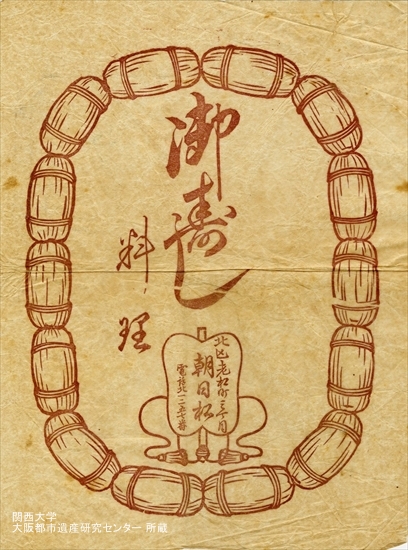 御寿し
料理
北区老松町三丁目
朝日松
電話北一二五七番
関西大学
大阪都市遺産研究センター 所蔵